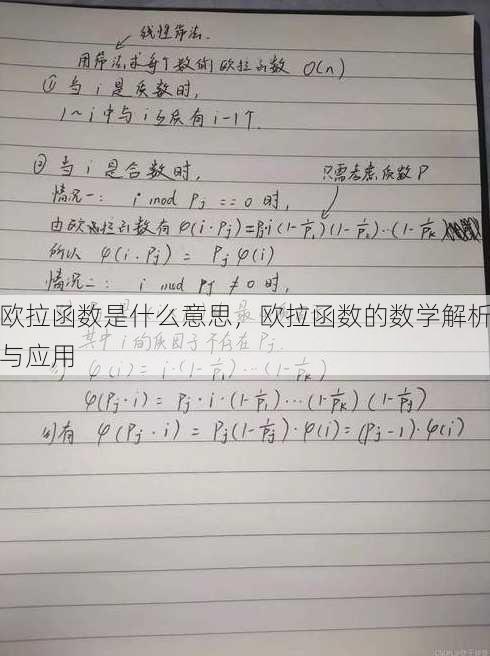 线性筛法.
用筛法求每个数的欧拉函数 O(n)
① 当 i 是质数时,
1~i 中与 i 互质有 i-1个.
② 当 i 是合数时,
只需考虑质数 P
情况一: i mod Pj == 0 时,
由欧拉函数有 φ(i·Pj)=Pj·i(1-1/P₁)(1-1/P₂)···(1-1/Pk)
所以 φ(i·Pj) = Pj φ(i)
情况二: i mod Pj ≠ 0 时,
欧拉函数是什么意思，欧拉函数的数学解析
与应用
其中 i 的质因子不存在 Pj.
φ(i) = i·(1-1/P₁)···(1-1/Pk)
φ(Pj·i) = Pj·i·(1-1/P₁)···(1-1/Pk)(1-1/Pj)
则有 φ(Pj·i) = Pj(1-1/Pj)·φ(i)=(Pj-1)·φ(i)